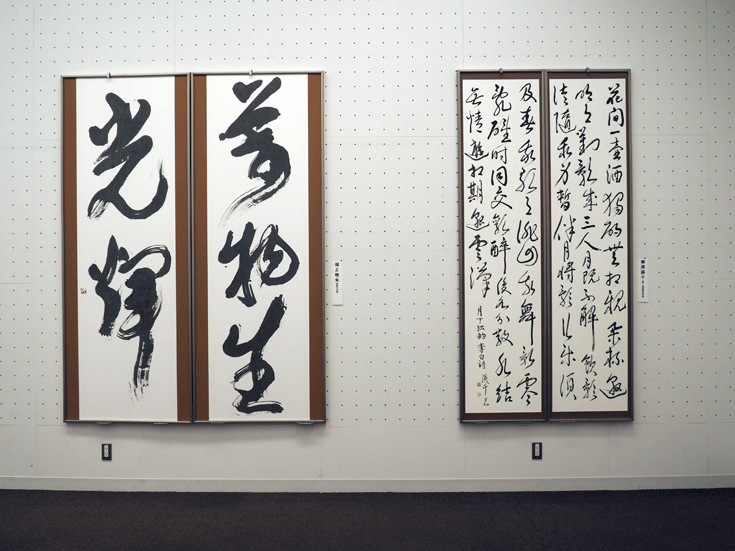 萬物生
光輝
花間一壺酒獨酌無相親舉杯邀
明月對影成三人月既不解飲影
徒隨我身暫伴月將影行樂須
及春我歌月徘徊我舞影零
亂醒時同交歡醉後各分散永結
無情遊相期邈雲漢
月下独酌 李白詩